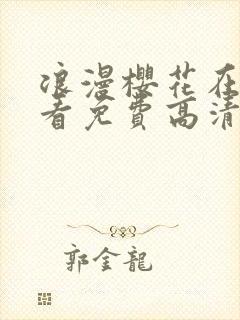 浪漫櫻花在
看免費高清
郭金龍